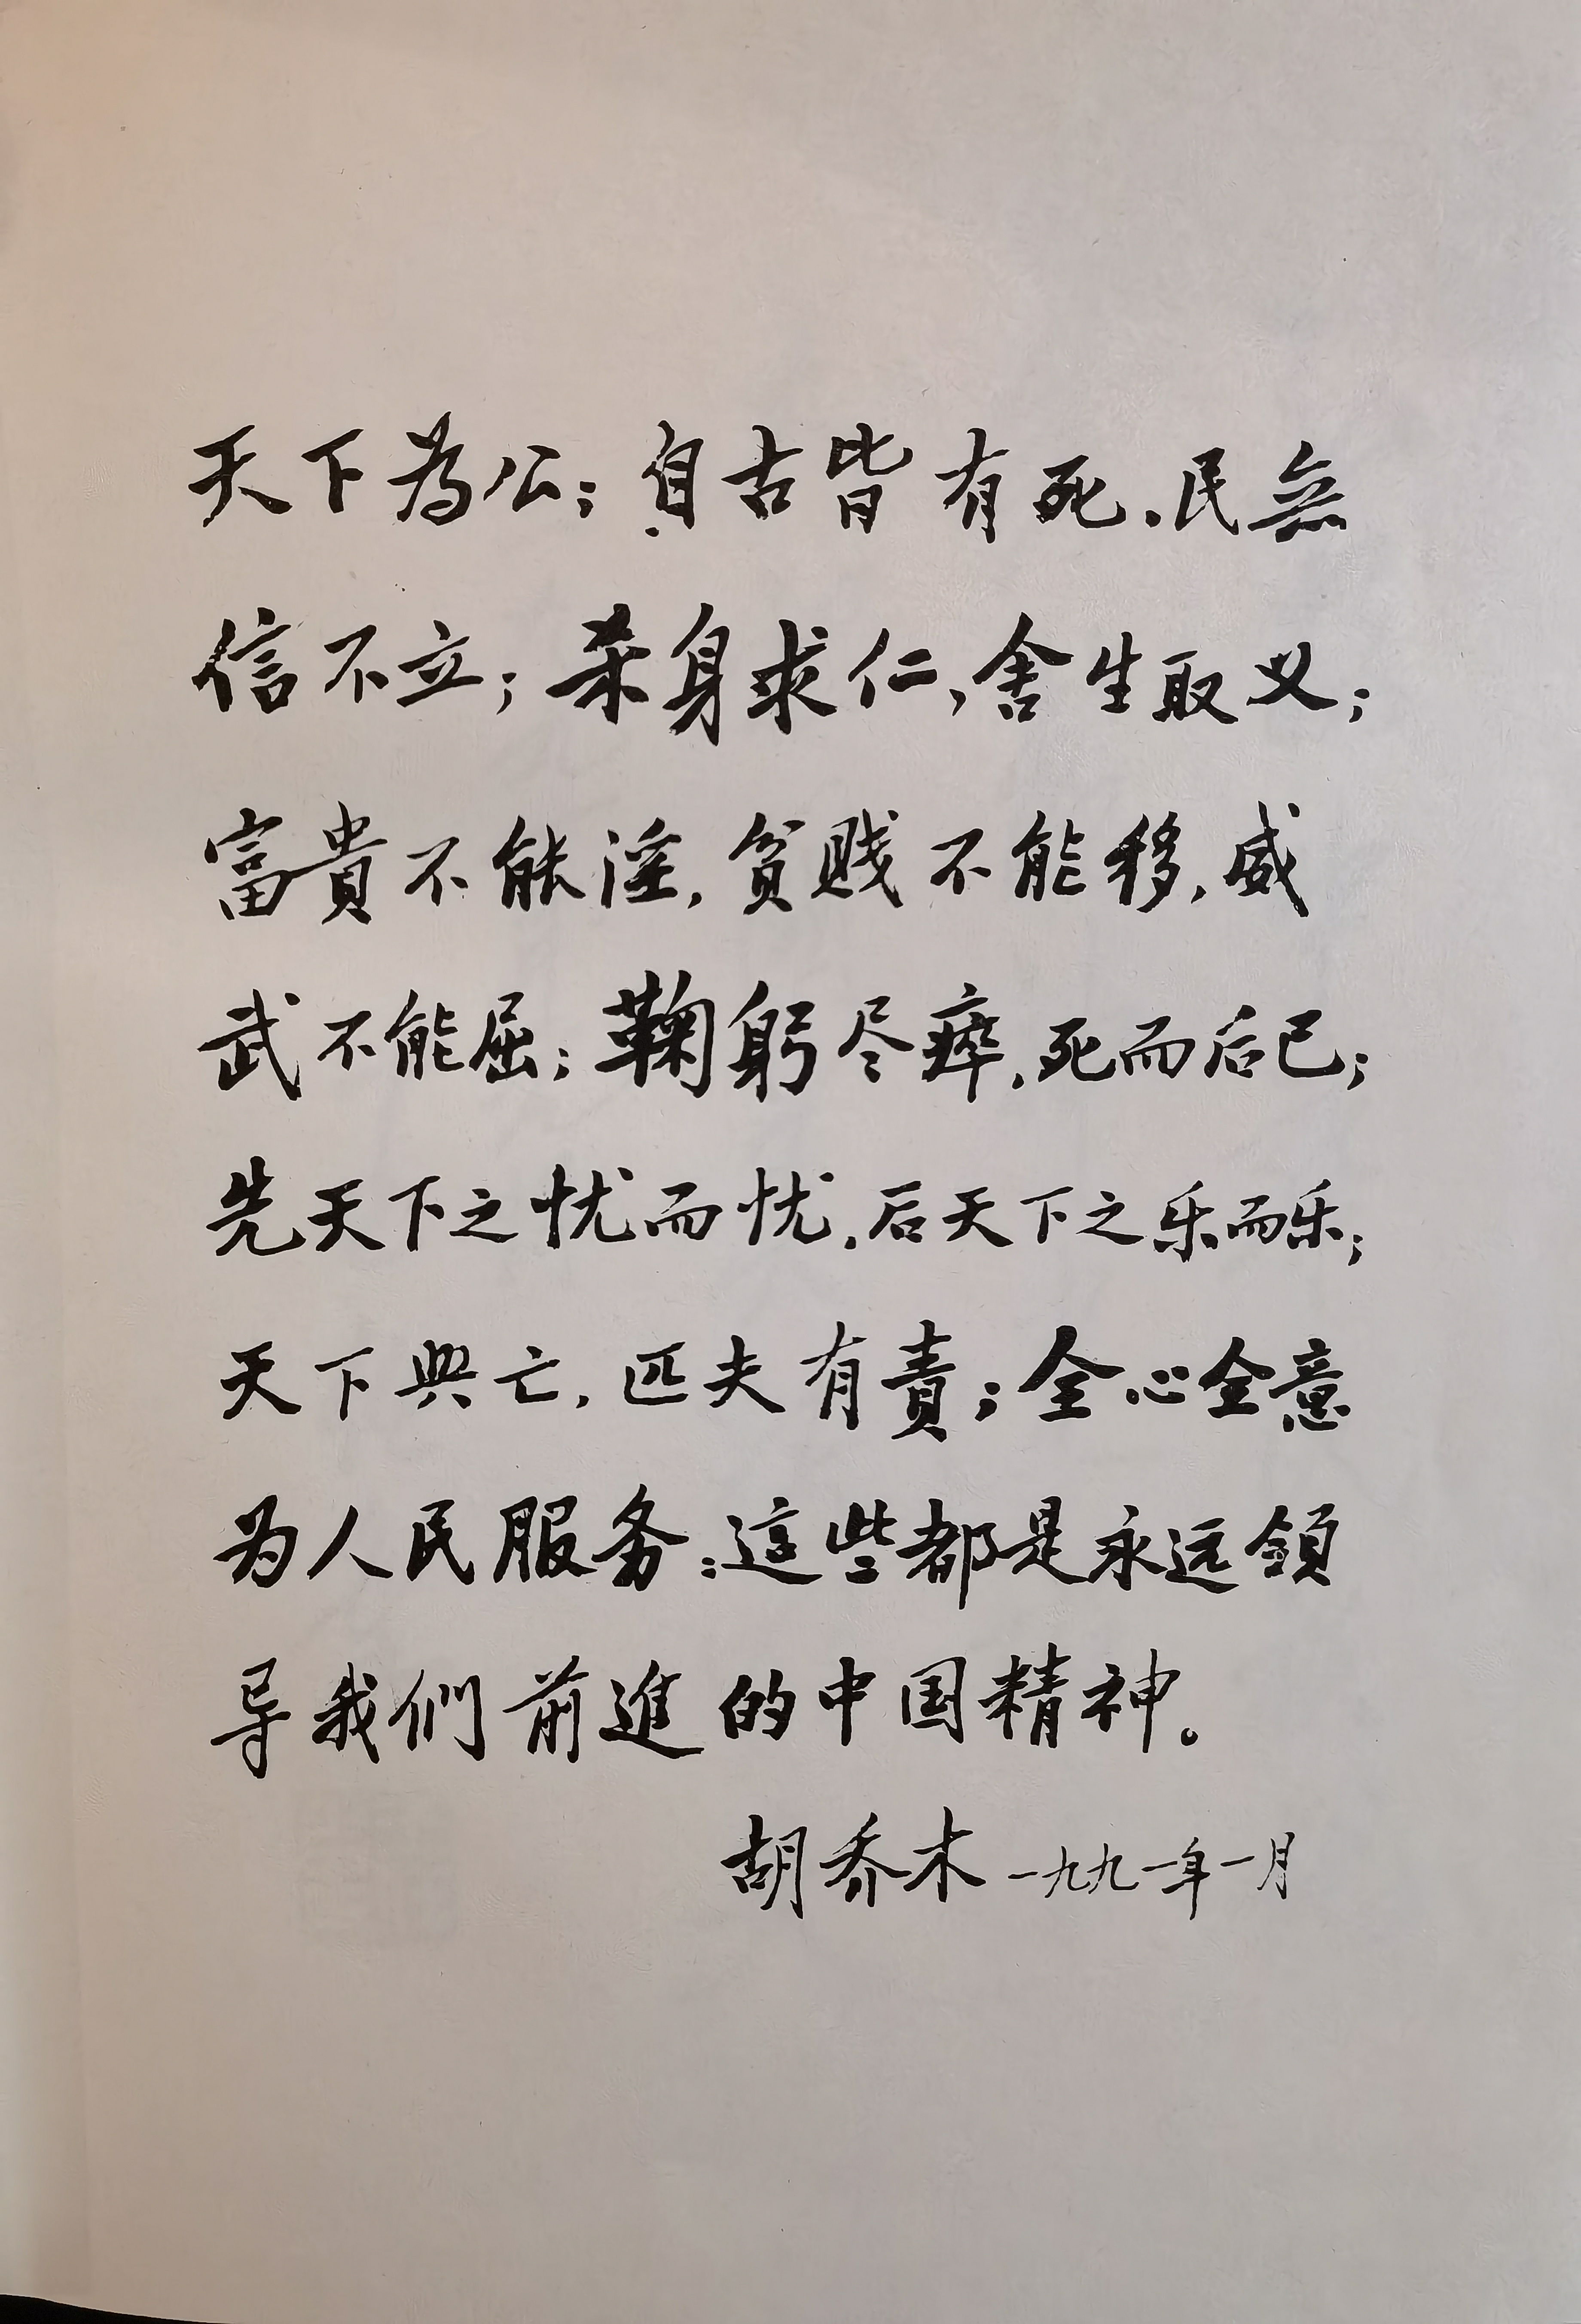 天下为公；自古皆有死，民無
信不立；杀身求仁，舍生取义；
富貴不能淫，贫贱不能移，威
武不能屈；鞠躬尽瘁，死而后已；
先天下之忧而忧，后天下之乐而乐；
天下興亡，匹夫有責；全心全意
为人民服务：這些都是永远領
导我們前進的中国精神。
胡乔木 一九九一年一月